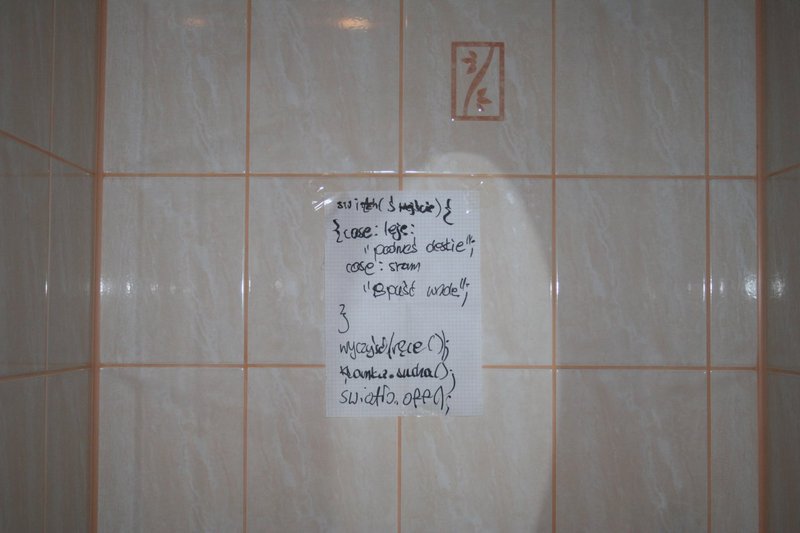 switch( $wejście) {
{case: leje:
"podnieś deskie";
case: sram
"spuść wode";
}
wyczyść(ręce());
.sucha();
światło.off();